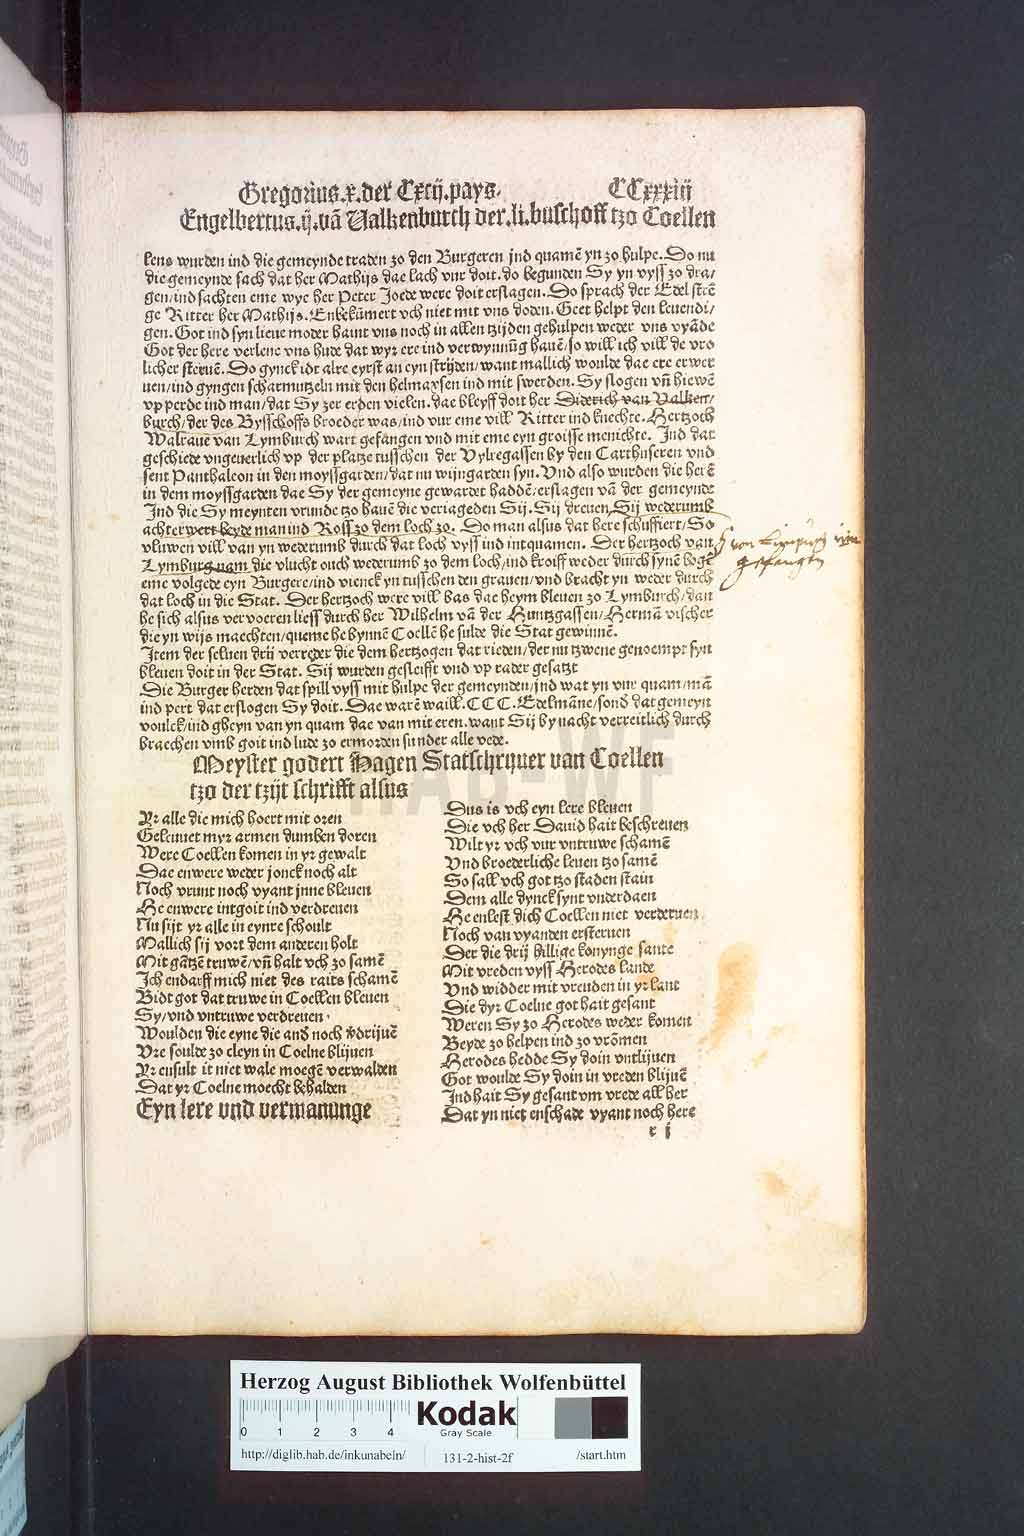 Gregorius.x.der Cxcij.pays. CCxxxiij
Engelbertus.ij.vā Valkenburch der.li.buschoff tzo Coellen
lens wurden ind die gemeynde traden zo den Burgeren jnd quamē yn zo hulpe. Do nu
die gemeynde sach dat her Mathijs dae lach vur doit. do begunden Sy yn vyss zo dra/
gen/ind sachten eme wye her Peter Joede were doit erslagen. Do sprach der Edel strē
ge Ritter her Mathijs. Enbekūmert vch niet mit vns doden. Geet helpt den leuendi/
gen. Got ind syn lieue moder haint vns noch in allen tzijden gehulpen weder vns vyāde
Got der here verlene vns hude dat wyr ere ind verwynnūg hauē/so will ich vill de vro
licher steruē. Do gynck idt alre eyrst an eyn strijden/want mallich woulde dae ere erwer
uen/ind gyngen scharmutzeln mit den helmaxsen ind mit swerden. Sy slogen vñ hiewē
vp perde ind man/dat Sy zer erden vielen. dae bleyff doit her Diderich van Valken/
burch/der des Bysschoffs broeder was/ind vur eme vill Ritter ind knechte. Hertzoch
Walrauē van Lymburch wart gefangen vnd mit eme eyn groisse menichte. Ind dat
geschiede vngeuerlich vp der platze tusschen der Vylregassen by den Carthuseren vnd
sent Panthaleon in den moyssgarden/dat nu wijngarden syn. Vnd also wurden die herē
in dem moyssgarden dae Sy der gemeyne gewardet haddē/erslagen vā der gemeynde
Ind die Sy meynten vrunde tzo hauē die veriageden Sij. Sij dreuen Sij wederumb
achterwert beyde man ind Ross zo dem loch zo. Do man alsus dat here schuffiert/So
vluwen vill van yn wederumb durch dat loch vyss ind intquamen. Der hertzoch van
Lymburg nam die vlucht ouch wederumb zo dem loch/ind kroiff weder durch synē bogē
eme volgede eyn Burgere/ind vienck yn tusschen den grauen/vnd bracht yn weder durch
dat loch in die Stat. Der hertzoch were vill bas dae heym bleuen zo Lymburch/dan
he sich alsus vervoeren lieff durch her Wilhelm vā der Huntzgassen/Hermā vischer
die yn wijs maechten/queme he bynnē Coellē he sulde die Stat gewinnē.
Item der seluen drij verreder die dem hertzogen dat rieden/der nu tzwene genoempt syn
bleuen doit in der Stat. Sij wurden gesleifft vnd vp rader gesatzt
Die Burger herden dat spill vyss mit hulpe der gemeynden/jnd wat yn vur quam/mā
ind pert dat erslogen Sy doit. Dae warē waill.CCC.Edelmāne/sond dat gemeyn
voulck/ind gheyn van yn quam dae van mit eren. want Sij by nacht verreitlich durch
braechen vmb goit ind lude zo ermorden sunder alle vede.
Meyster godert Hagen Statschryuer van Coellen
tzo der tzijt schrifft alsus
Yr alle die mich hoert mit oren
Geleuuet myr armen dumben doren
Were Coellen komen in yr gewalt
Dae enwere weder jonck noch alt
Noch vrunt noch vyant jnne bleuen
He enwere intgoit ind verdreuen
Nu sijt yr alle in eynre schoult
Mallich sij vort dem anderen holt
Mit gātzē truwē/vñ halt vch zo samē
Ich endarff mich niet des raits schamē
Bidt got dat truwe in Coellen bleuen
Sy/vnd vntruwe verdreuen
Woulden die eyne die and noch v̄drijuē
Vre soulde zo cleyn in Coelne blijuen
Yr ensult it niet wale moegē verwalden
Dat yr Coelne moecht behalden
Eyn lere vnd vermanunge
Dus is vch eyn lere bleuen
Die vch her Dauid hait beschreuen
Wilt yr vch vur vntruwe schamē
Vnd broederliche leuen tzo samē
So sall vch got tzo staden stain
Dem alle dynck synt vnderdaen
He enlest dich Coellen niet verderuen
Noch van vyanden ersteruen
Der die drij hillige konynge sante
Mit vreden vyss Herodes lande
Vnd widder mit vreuden in yr lant
Die dyr Coelne got hait gesant
Weren Sy zo Herodes weder komen
Beyde zo helpen ind zo vrōmen
Herodes hedde Sy doin vntlijuen
Got woulde Sy doin in vreden blijuē
Ind hait Sy gesant vm vrede all her
Dat yn niet enschade vyant noch here
r j
von
gefangen
HAB-WF
Herzog August Bibliothek Wolfenbüttel
0 1 2 3 4 Kodak
Gray Scale
http://diglib.hab.de/inkunabeln/ 131-2-hist-2f /start.htm